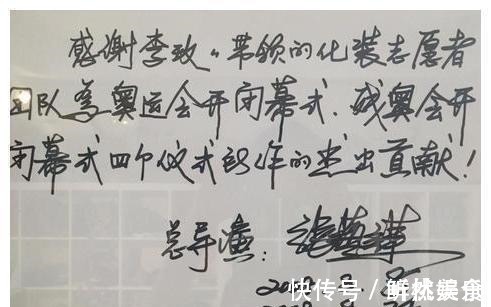 感谢李玫,带领的化装志愿者
团队为奥运会开闭幕式、残奥会开
闭幕式四个仪式所作的杰出贡献!
总导演: 张艺谋
快传号/鲜桃娱乐